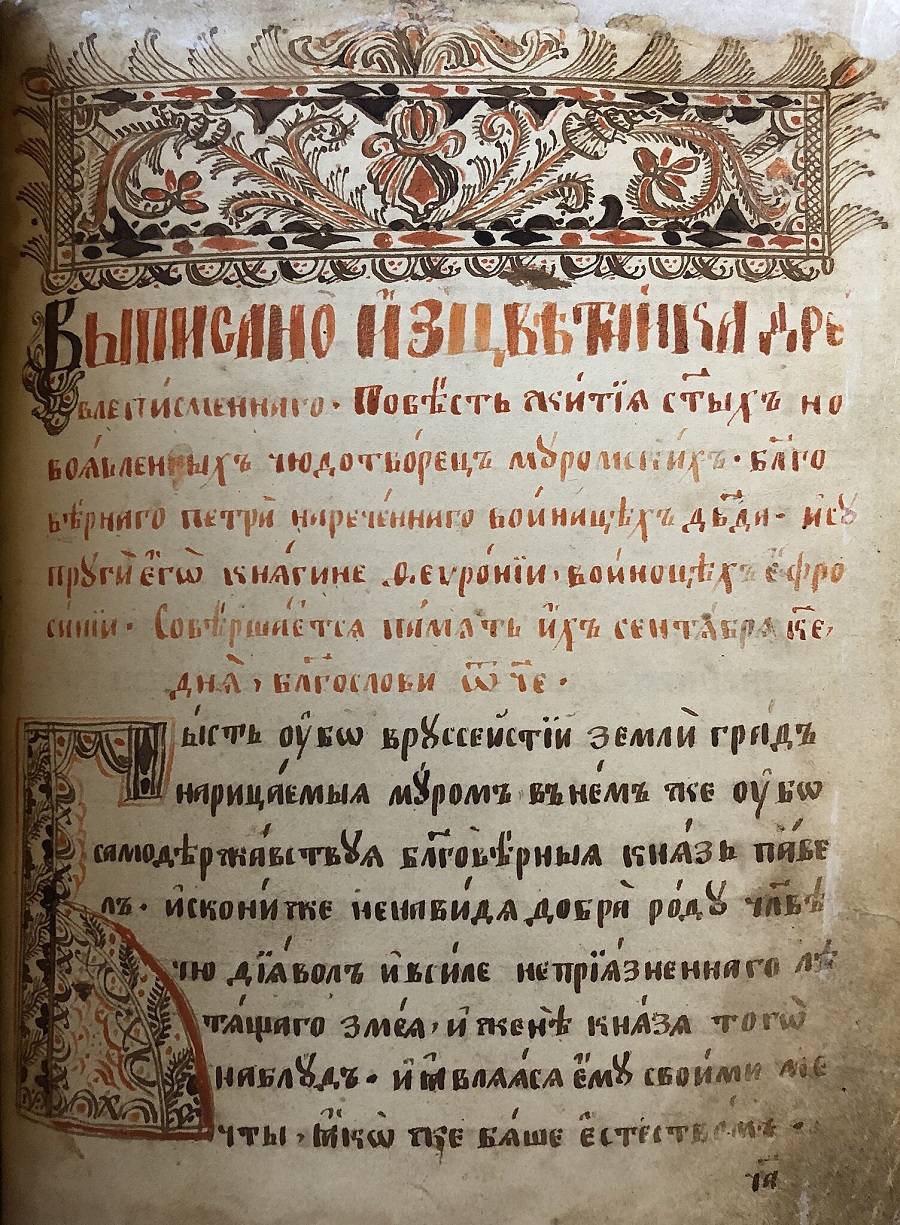 Выписано и҆зцвѣтника дре
влеписменнаго. Повѣсть жи́тїѧ ст҃ыхъ но
воѧвленныхъ чюдотво́рецъ мꙋромскихъ. бл҃го
вѣ́рнаго петра̀ нарече́ннаго воиноцѣхъ дв҃да. и҆сꙋ
прꙋга̀ є҆гѡ̀ кнѧ́гине ѳ.еѵро́нїи, воиноцѣхъ є҆фро
синїи. Соверша́етсѧ па́мѧть и҆хъ сентѧ́брѧ к҃е,
днѧ̀, бл҃гослови ѿч҃е.
Бы́сть оу҆́бѡ врꙋссе́йстїй землѝ гра́дъ
нарица́емыѧ мꙋ́ромъ. въне́мъ же оу҆́бѡ
самоде́ржавствꙋѧ бл҃гове́рныѧ кнѧ́зь па́ве
лъ. и҆скони́же ненави́дѧ добра̀ ро́дꙋ чл҃вѣ
чю дїѧ́волъ и҆всиле неприѧ́зненнаго лѣ
та́щаго змеѧ, и҆женѣ̀ кнѧ́зѧ тогѡ̀
наблꙋ́дъ. и҆ ꙗ҆влѧ́ѧсѧ є҆мꙋ̀ свои́ми ме
чты, ꙗ҆́кѡ же бѧ́ше є҆стество́мъ.